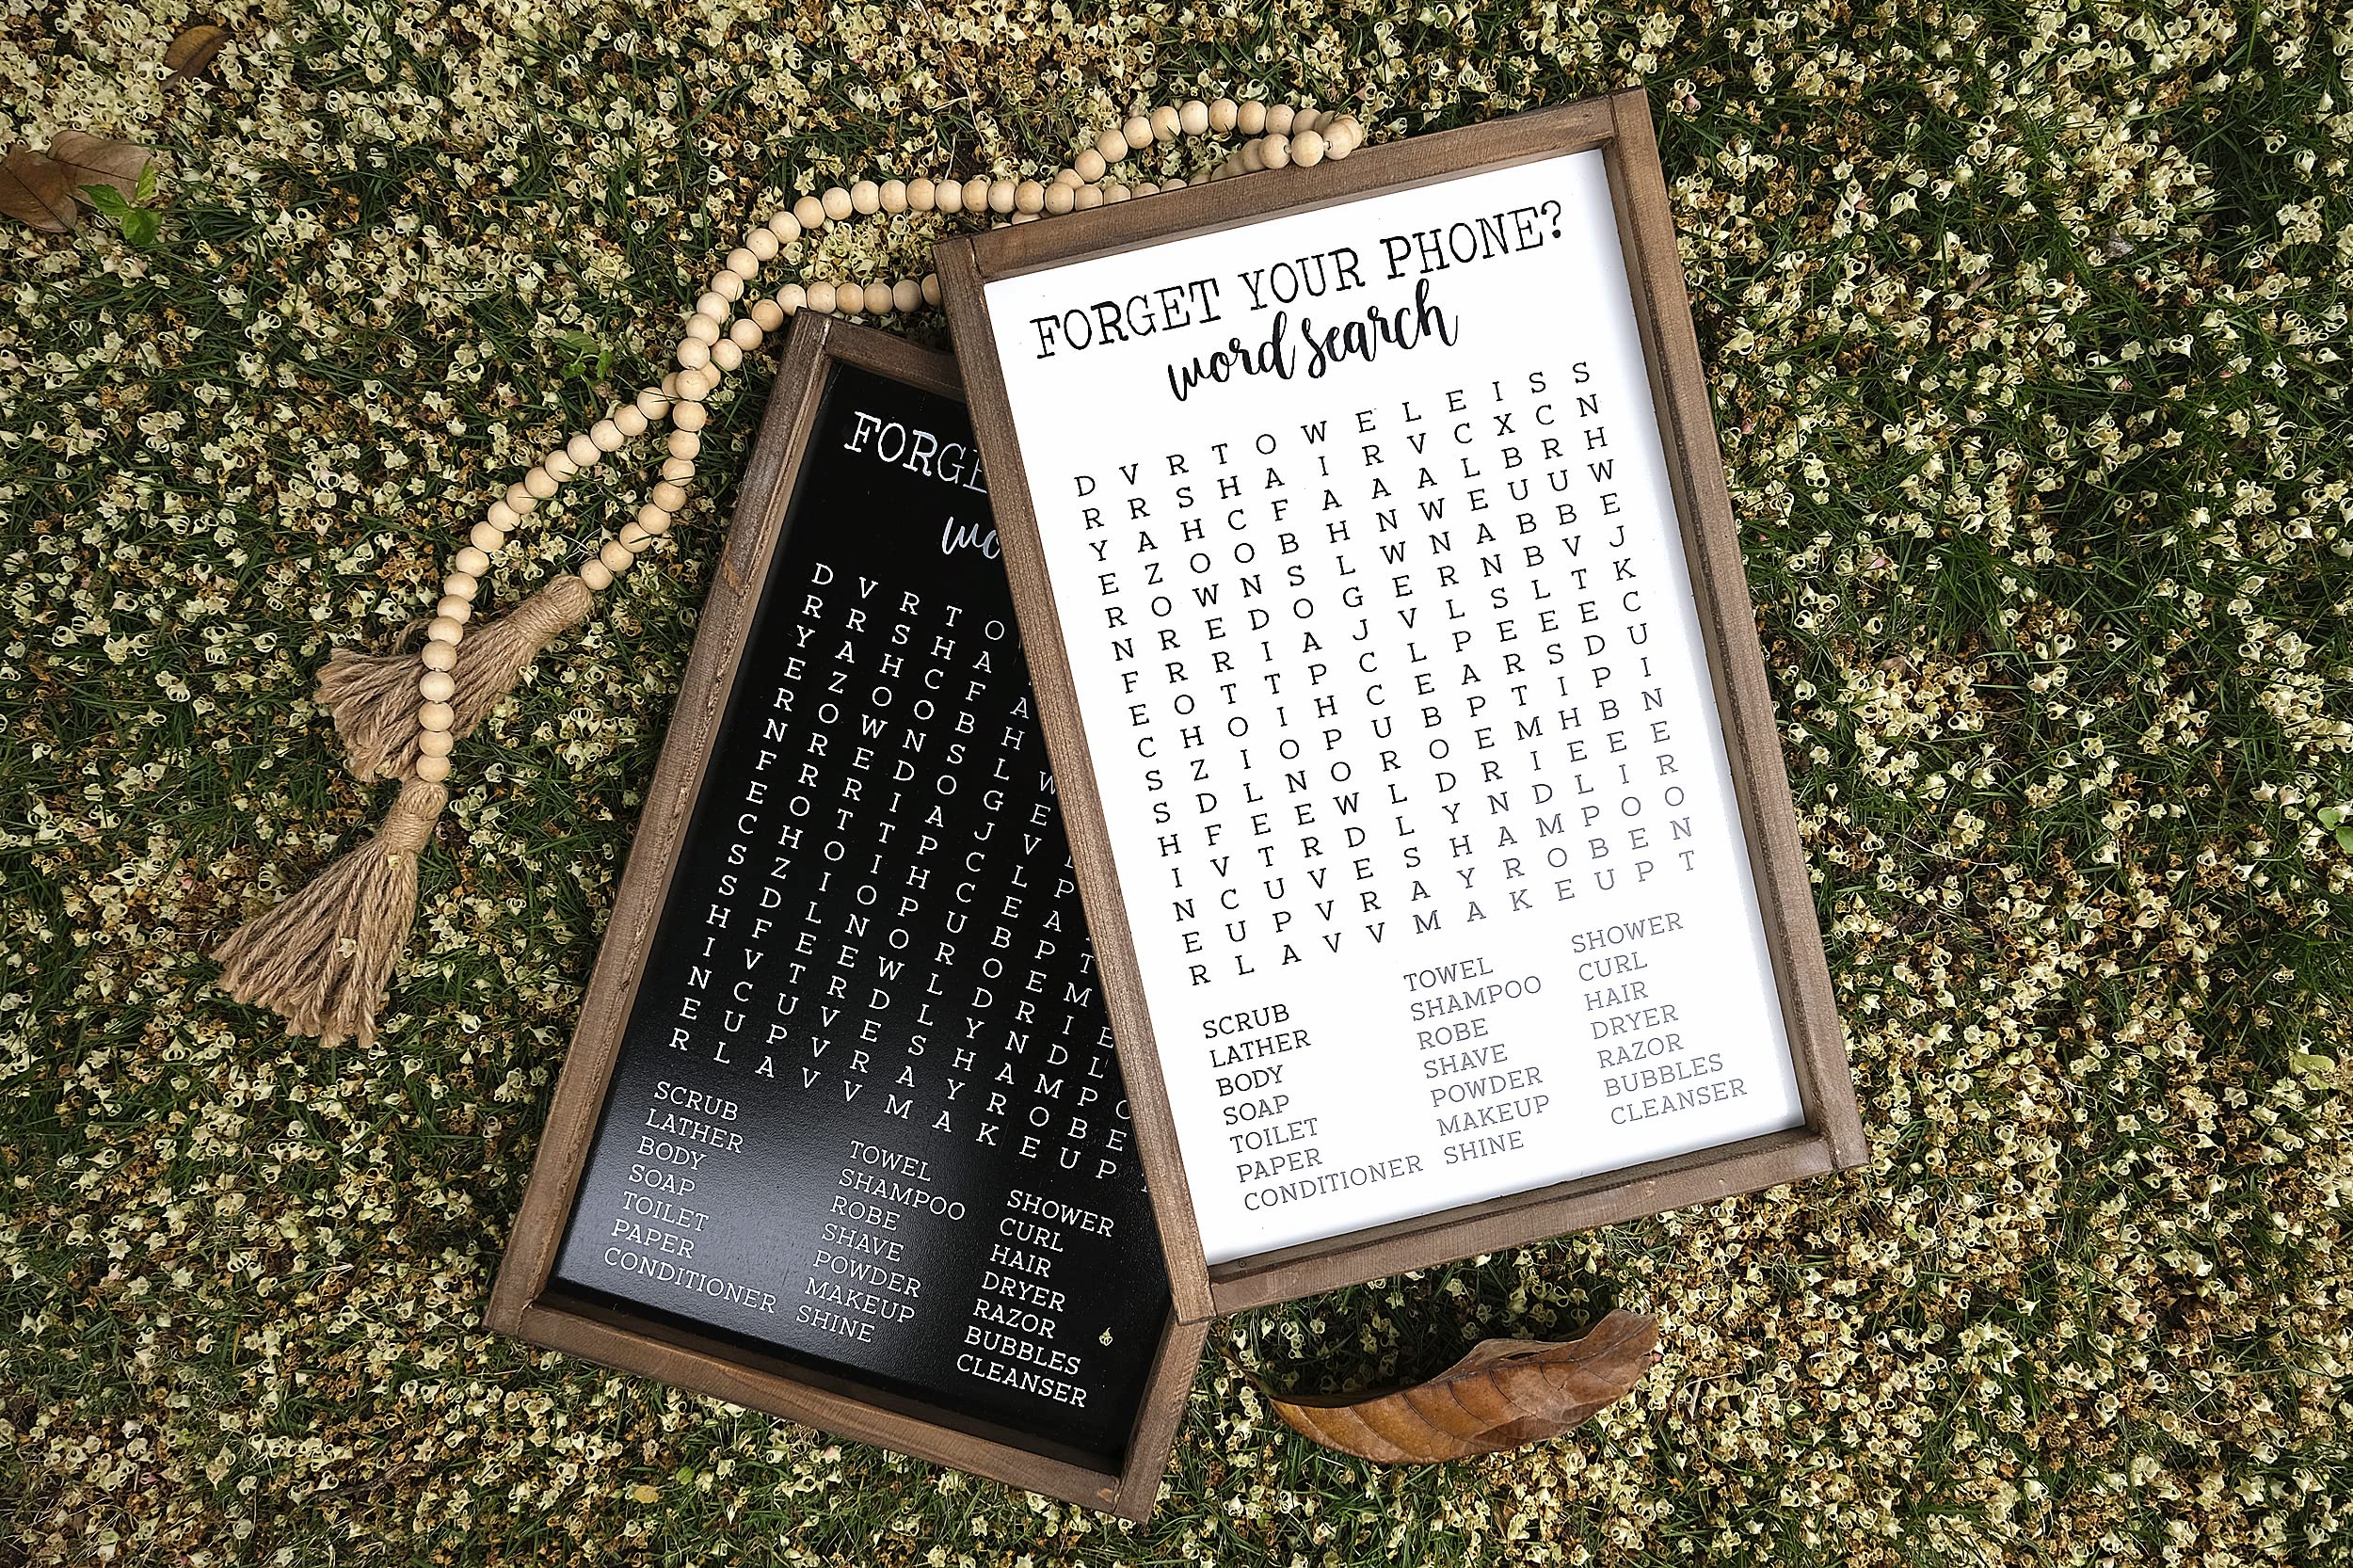 FORGET YOUR PHONE?
word search
D V R T O W E L E I S S
R R S H A I R V C X C N
Y A H C F A A A L B R H
E Z O O B H N W E U U W
R O W N S L W N A B B E
N R E D O G E R N B V J
F R R I A J V L S L T K
E O T T P C L P E E E C
C H O I H C E A R S D U
S Z I O P U B P T I P I
S D L N O R O E M H B N
H F E E W L D R I E E E
I V T R D L Y N D L I R
N C U V E S H A M P O O
E U P V R A Y R O B E N
R L A V V M A K E U P T
SCRUB
LATHER
BODY
SOAP
TOILET
PAPER
CONDITIONER
TOWEL
SHAMPOO
ROBE
SHAVE
POWDER
MAKEUP
SHINE
SHOWER
CURL
HAIR
DRYER
RAZOR
BUBBLES
CLEANSER
FORGE
wo
D V R T O
R R S H A
Y A H C F A
E Z O O B H
R O W N S L W
N R E D O G E
F R R I A J V
E O T T P C L P
C H O I H C E A
S Z I O P U B P T
S D L N O R O E M
H F E E W L D R I E
I V T R D L Y N D L
N C U V E S H A M P O
E U P V R A Y R O B E
R L A V V M A K E U P
SCRUB
LATHER
BODY
SOAP
TOILET
PAPER
CONDITIONER
TOWEL
SHAMPOO
ROBE
SHAVE
POWDER
MAKEUP
SHINE
SHOWER
CURL
HAIR
DRYER
RAZOR
BUBBLES
CLEANSER